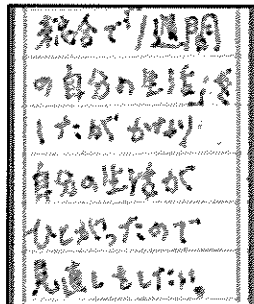 総合で1週間
の自分の生活を
したがかり
自分の生活が
ひどかったので
見直したいな。